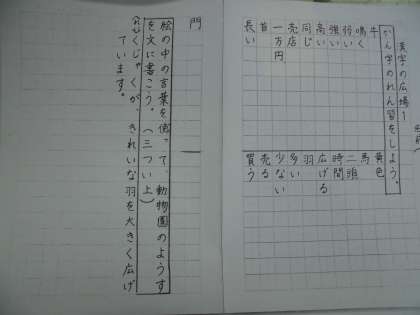 漢字の広場1
かん字のれん習をしよう。
牛
鳴く
弱い
強い
高い
同じ
売店
一万円
首
長い
黄色
馬
二頭
時間
広げる
羽
多い
少ない
売る
買う
門
絵の中の言葉を使って、動物園のようす
を文に書こう。(三つい上)
くじゃくが きれいな羽を大きく広げ
ています。